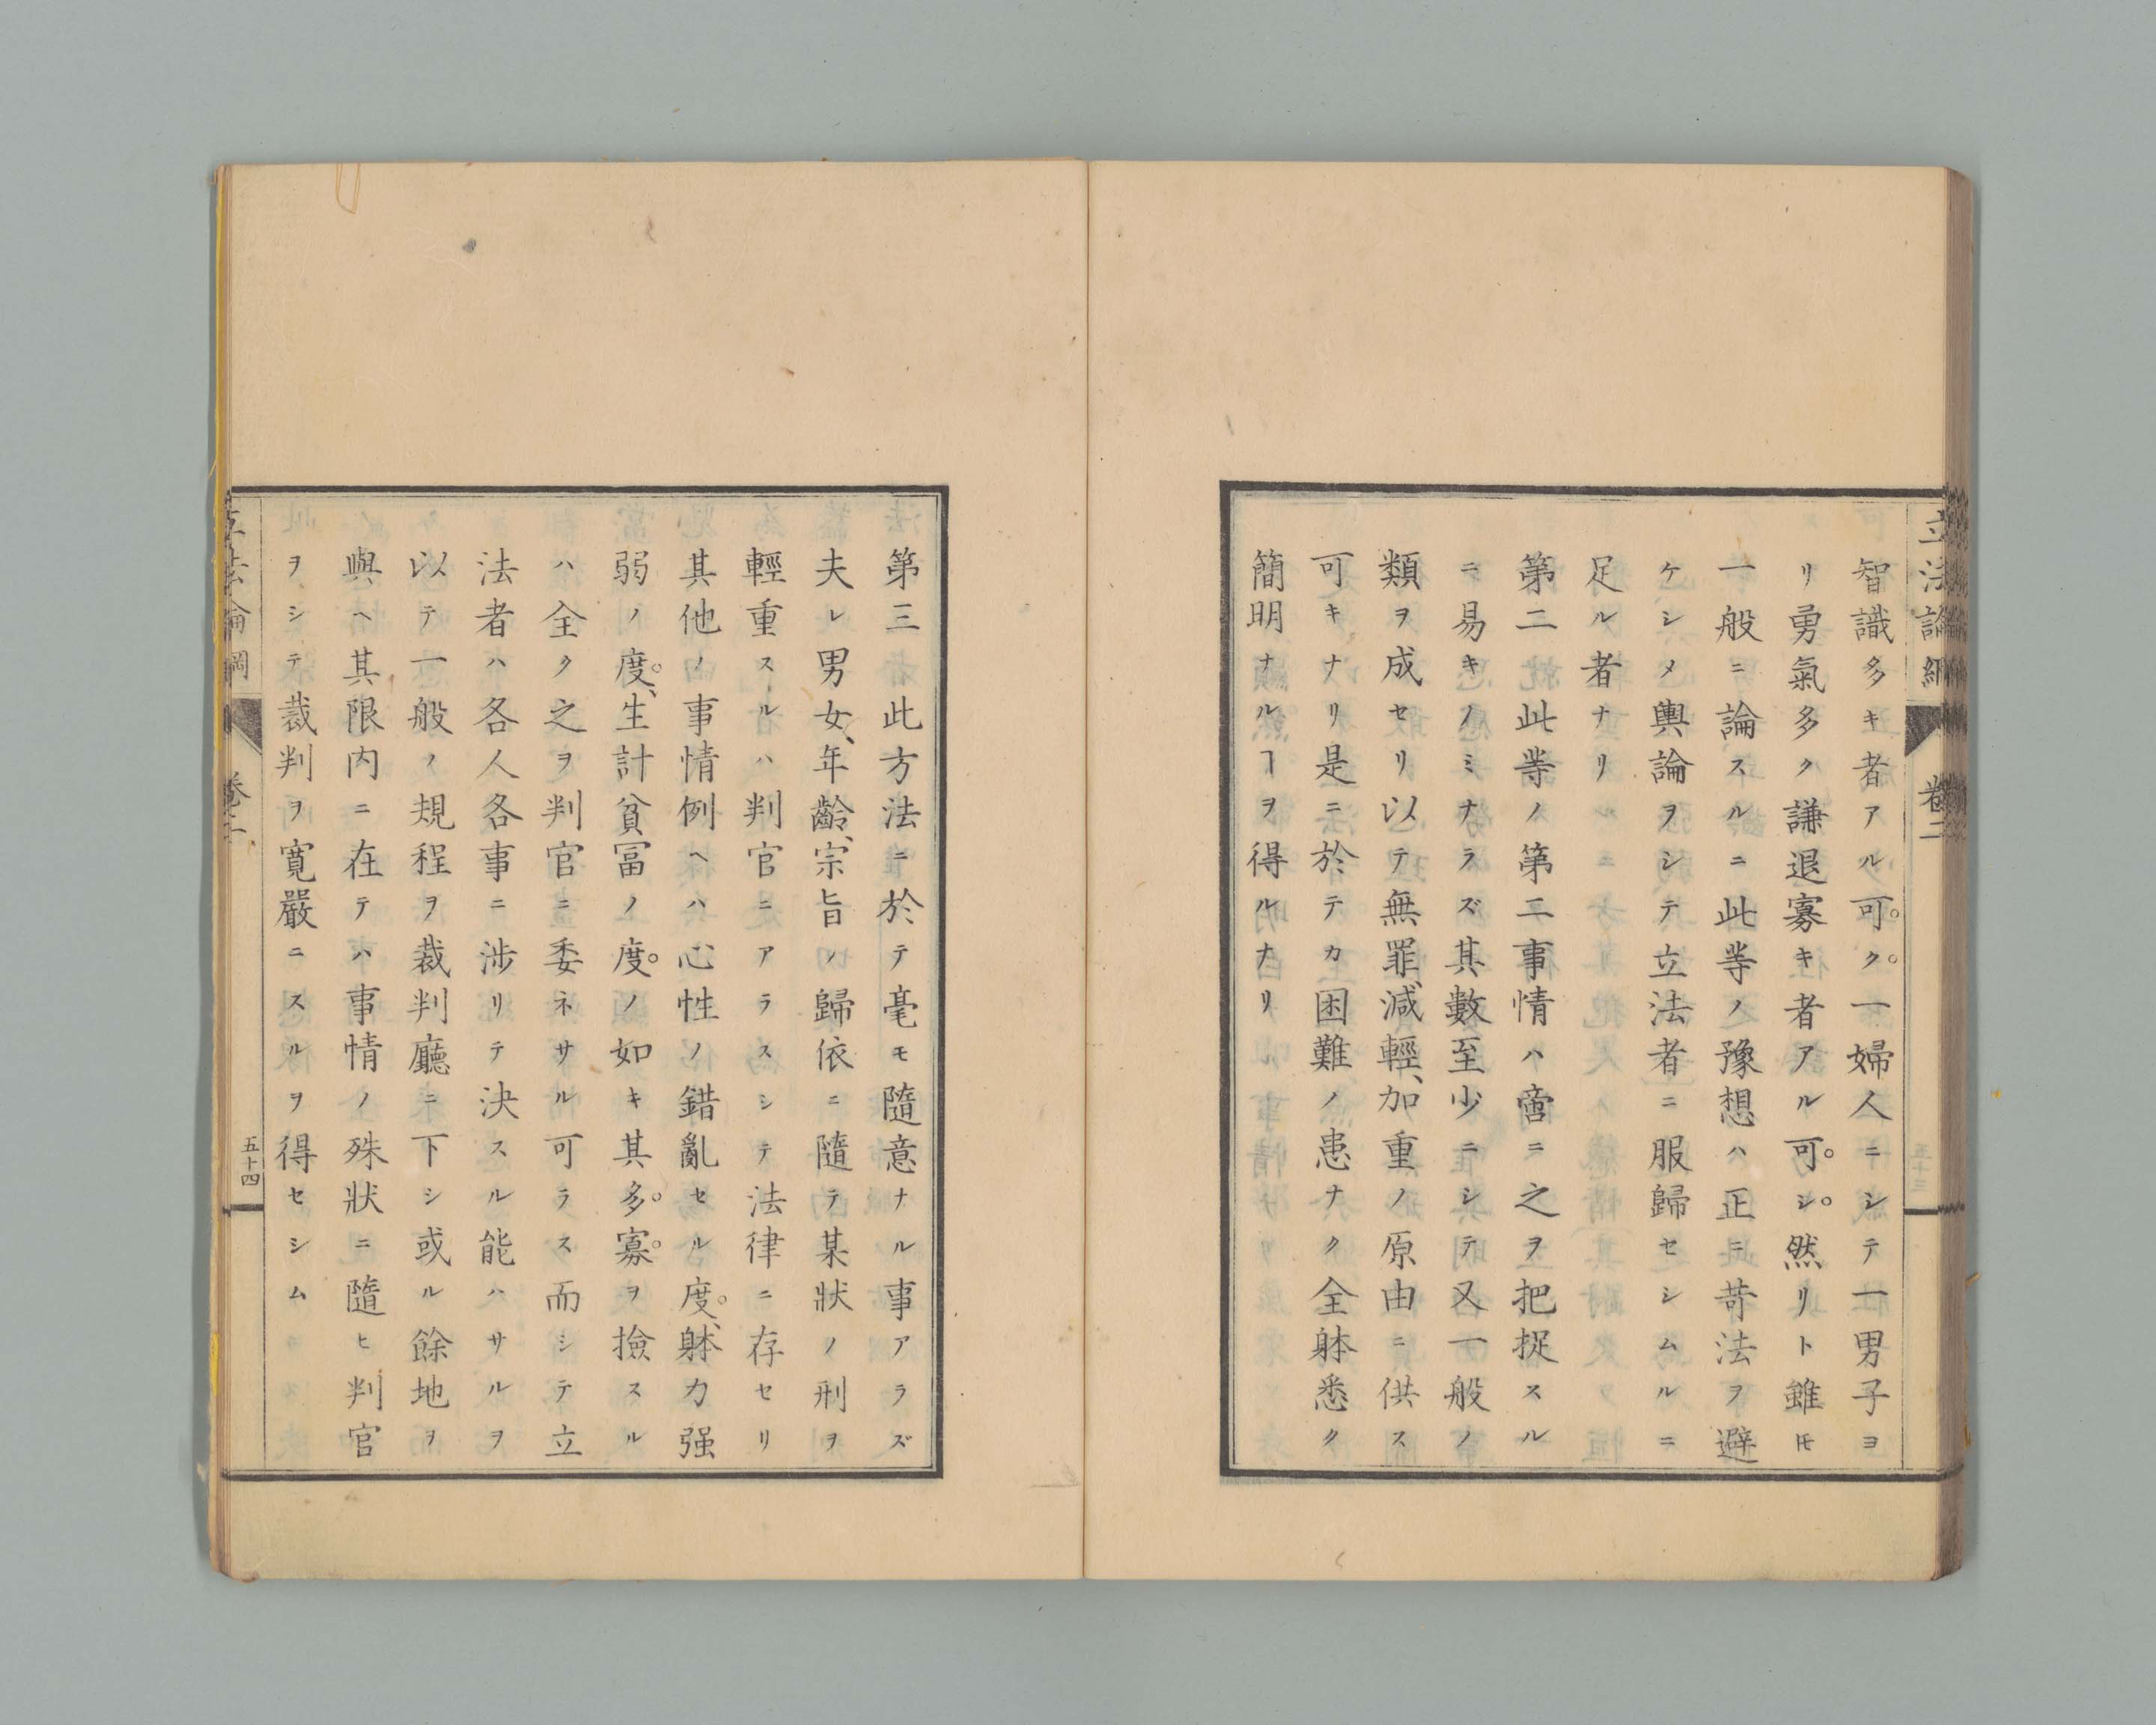 立法論綱 卷二
智識多キ者アル可ク一婦人ニシテ一男子ヨ
リ勇氣多ク謙退寡キ者アル可シ然リト雖𪜈
一般ニ論スルニ此等ノ豫想ハ正ニ苛法ヲ避
ケシメ輿論ヲシテ立法者ニ服歸セシムルニ
足ル者ナリ
第二此等ノ第二事情ハ啻ニ之ヲ把捉スル
ニ易キノミナラズ其數至少ニシテ又一般ノ
類ヲ成セリ以テ無罪、減輕、加重ノ原由ニ供ス
可キナリ是ニ於テカ困難ノ患ナク全躰悉ク
簡明ナルヿヲ得ルナリ
第三此方法ニ於テ毫モ隨意ナル事アラズ
夫レ男女、年齡、宗旨ノ歸依ニ隨テ某狀ノ刑ヲ
輕重スルハ判官ニアラスシテ法律ニ存セリ
其他ノ事情例ヘハ心性ノ錯亂セル度、躰力强
弱ノ度、生計貧冨ノ度ノ如キ其多寡ヲ撿スル
ハ全ク之ヲ判官ニ委ネサル可ラス而シテ立
法者ハ各人各事ニ涉リテ決スル能ハサルヲ
以テ一般ノ規程ヲ裁判廳ニ下シ或ル餘地ヲ
與ヘ其限内ニ在テハ事情ノ殊狀ニ隨ヒ判官
ヲシテ裁判ヲ寬嚴ニスルヲ得セシム
立法論綱 卷二 五十四